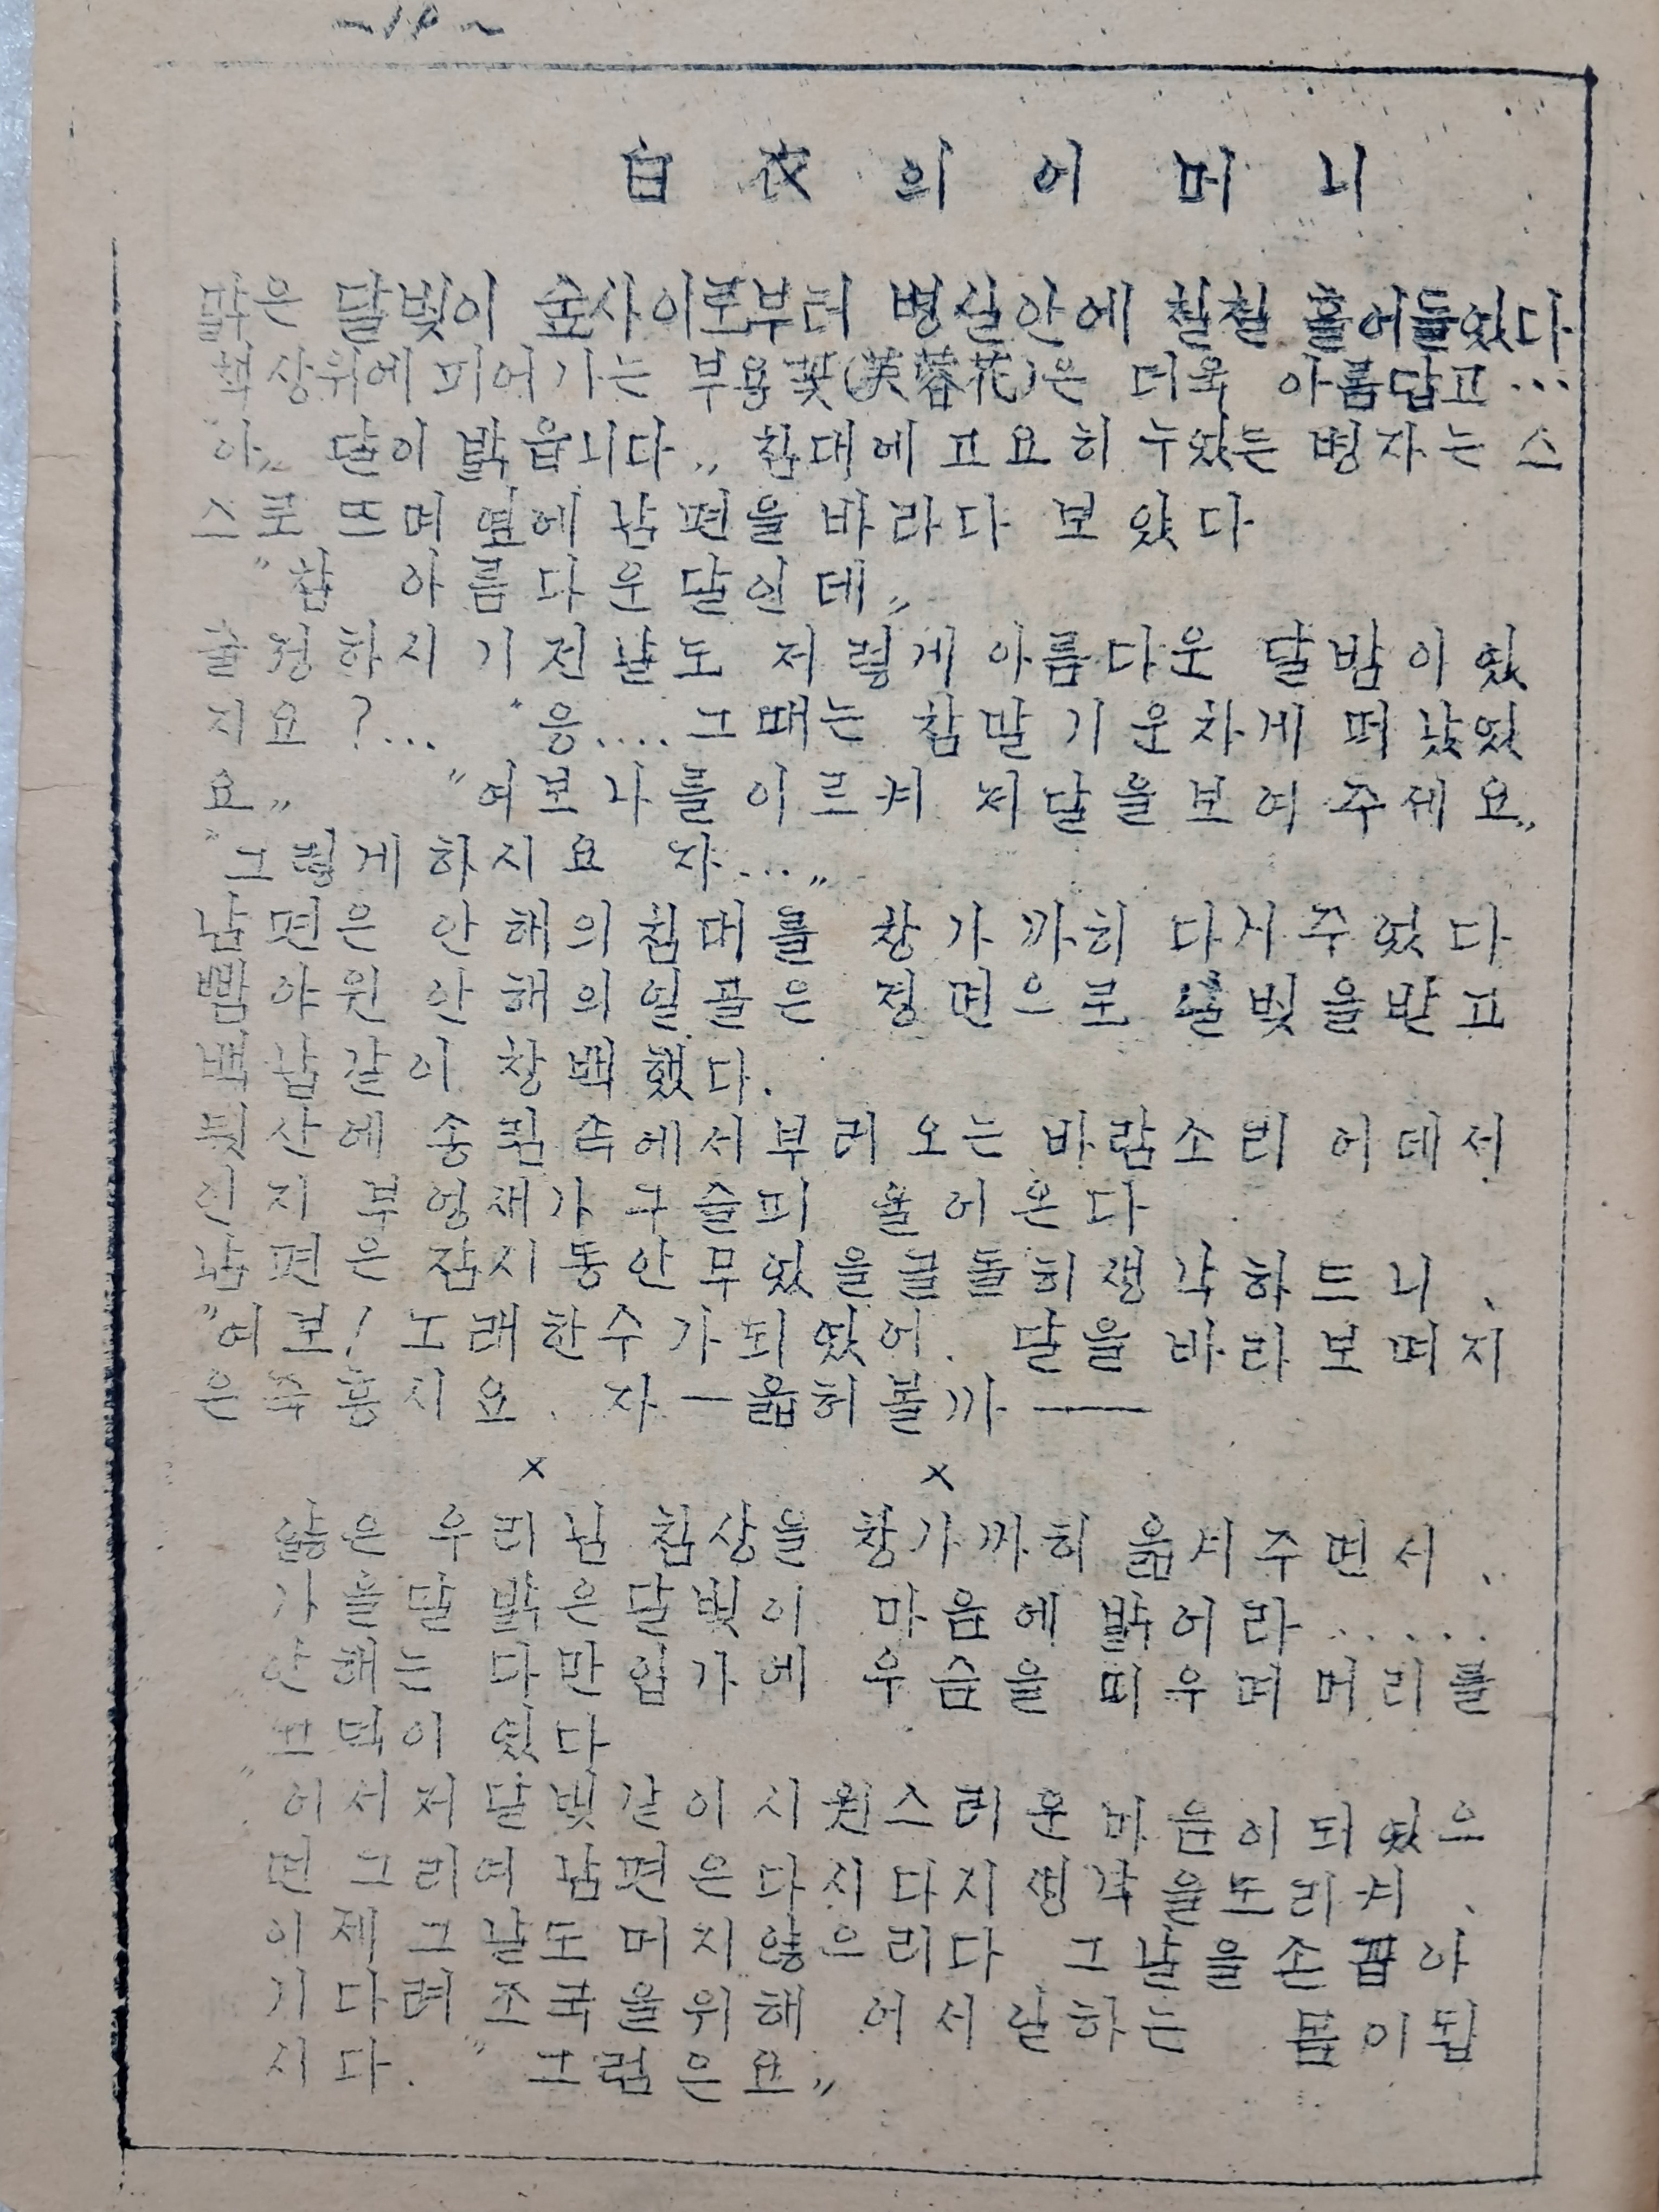 白衣의어머니
맑은 달빛이 숲사이로부터 병실안에 칠칠 흘어들었다
책상위에 피어가는 부용꽃(芙蓉花)은 더욱 아름답고…
"아„ 달이 밝읍니다„ 침대에 고요히 누았든 병자는 스
스로 뜨며 옆에 남편을 바라다 보았다
"참 아름다운달인데„
출정하시기전날도 저렇게 아름다운 달밤이였
지요?... "응.... 그때는 참말기운차게 떠났었
요„ "여보나를이르켜 저달을보여주세요„
"그렇게하시요 자...„
남편은 안해의침대를 창가까히 다시주었다
뺌야윈 안해의얼골은 정면으로 달빛을받고
백납같이 창백했다.
뒷산에 송림속에서부러오는 바람소리 어데서
인지 부엉새가 구슬피 울어온다
남편은 잠시동안무었을골돌히생각하드니、
"여보! 노래한수가되였어. 달을 바라보며지
은 시요. 자—읊허볼까——
× ×
앓은 우리님 침상을 창가까히 옮겨주면서、
가을달 밝은달빛이 마음에 밝어라.....
안해는 다만입가에 우슴을 띠우며머리를
끄덕이였다
"어서저달빛같이시원스러운마음이되였으
면 그리여 남편은다시다지생각을도리켜、
이제 그날도머지않으리다 그날을손꼽아
기다려 조국을위해 어서일하는 몸이됩
시다. "그럼은요„